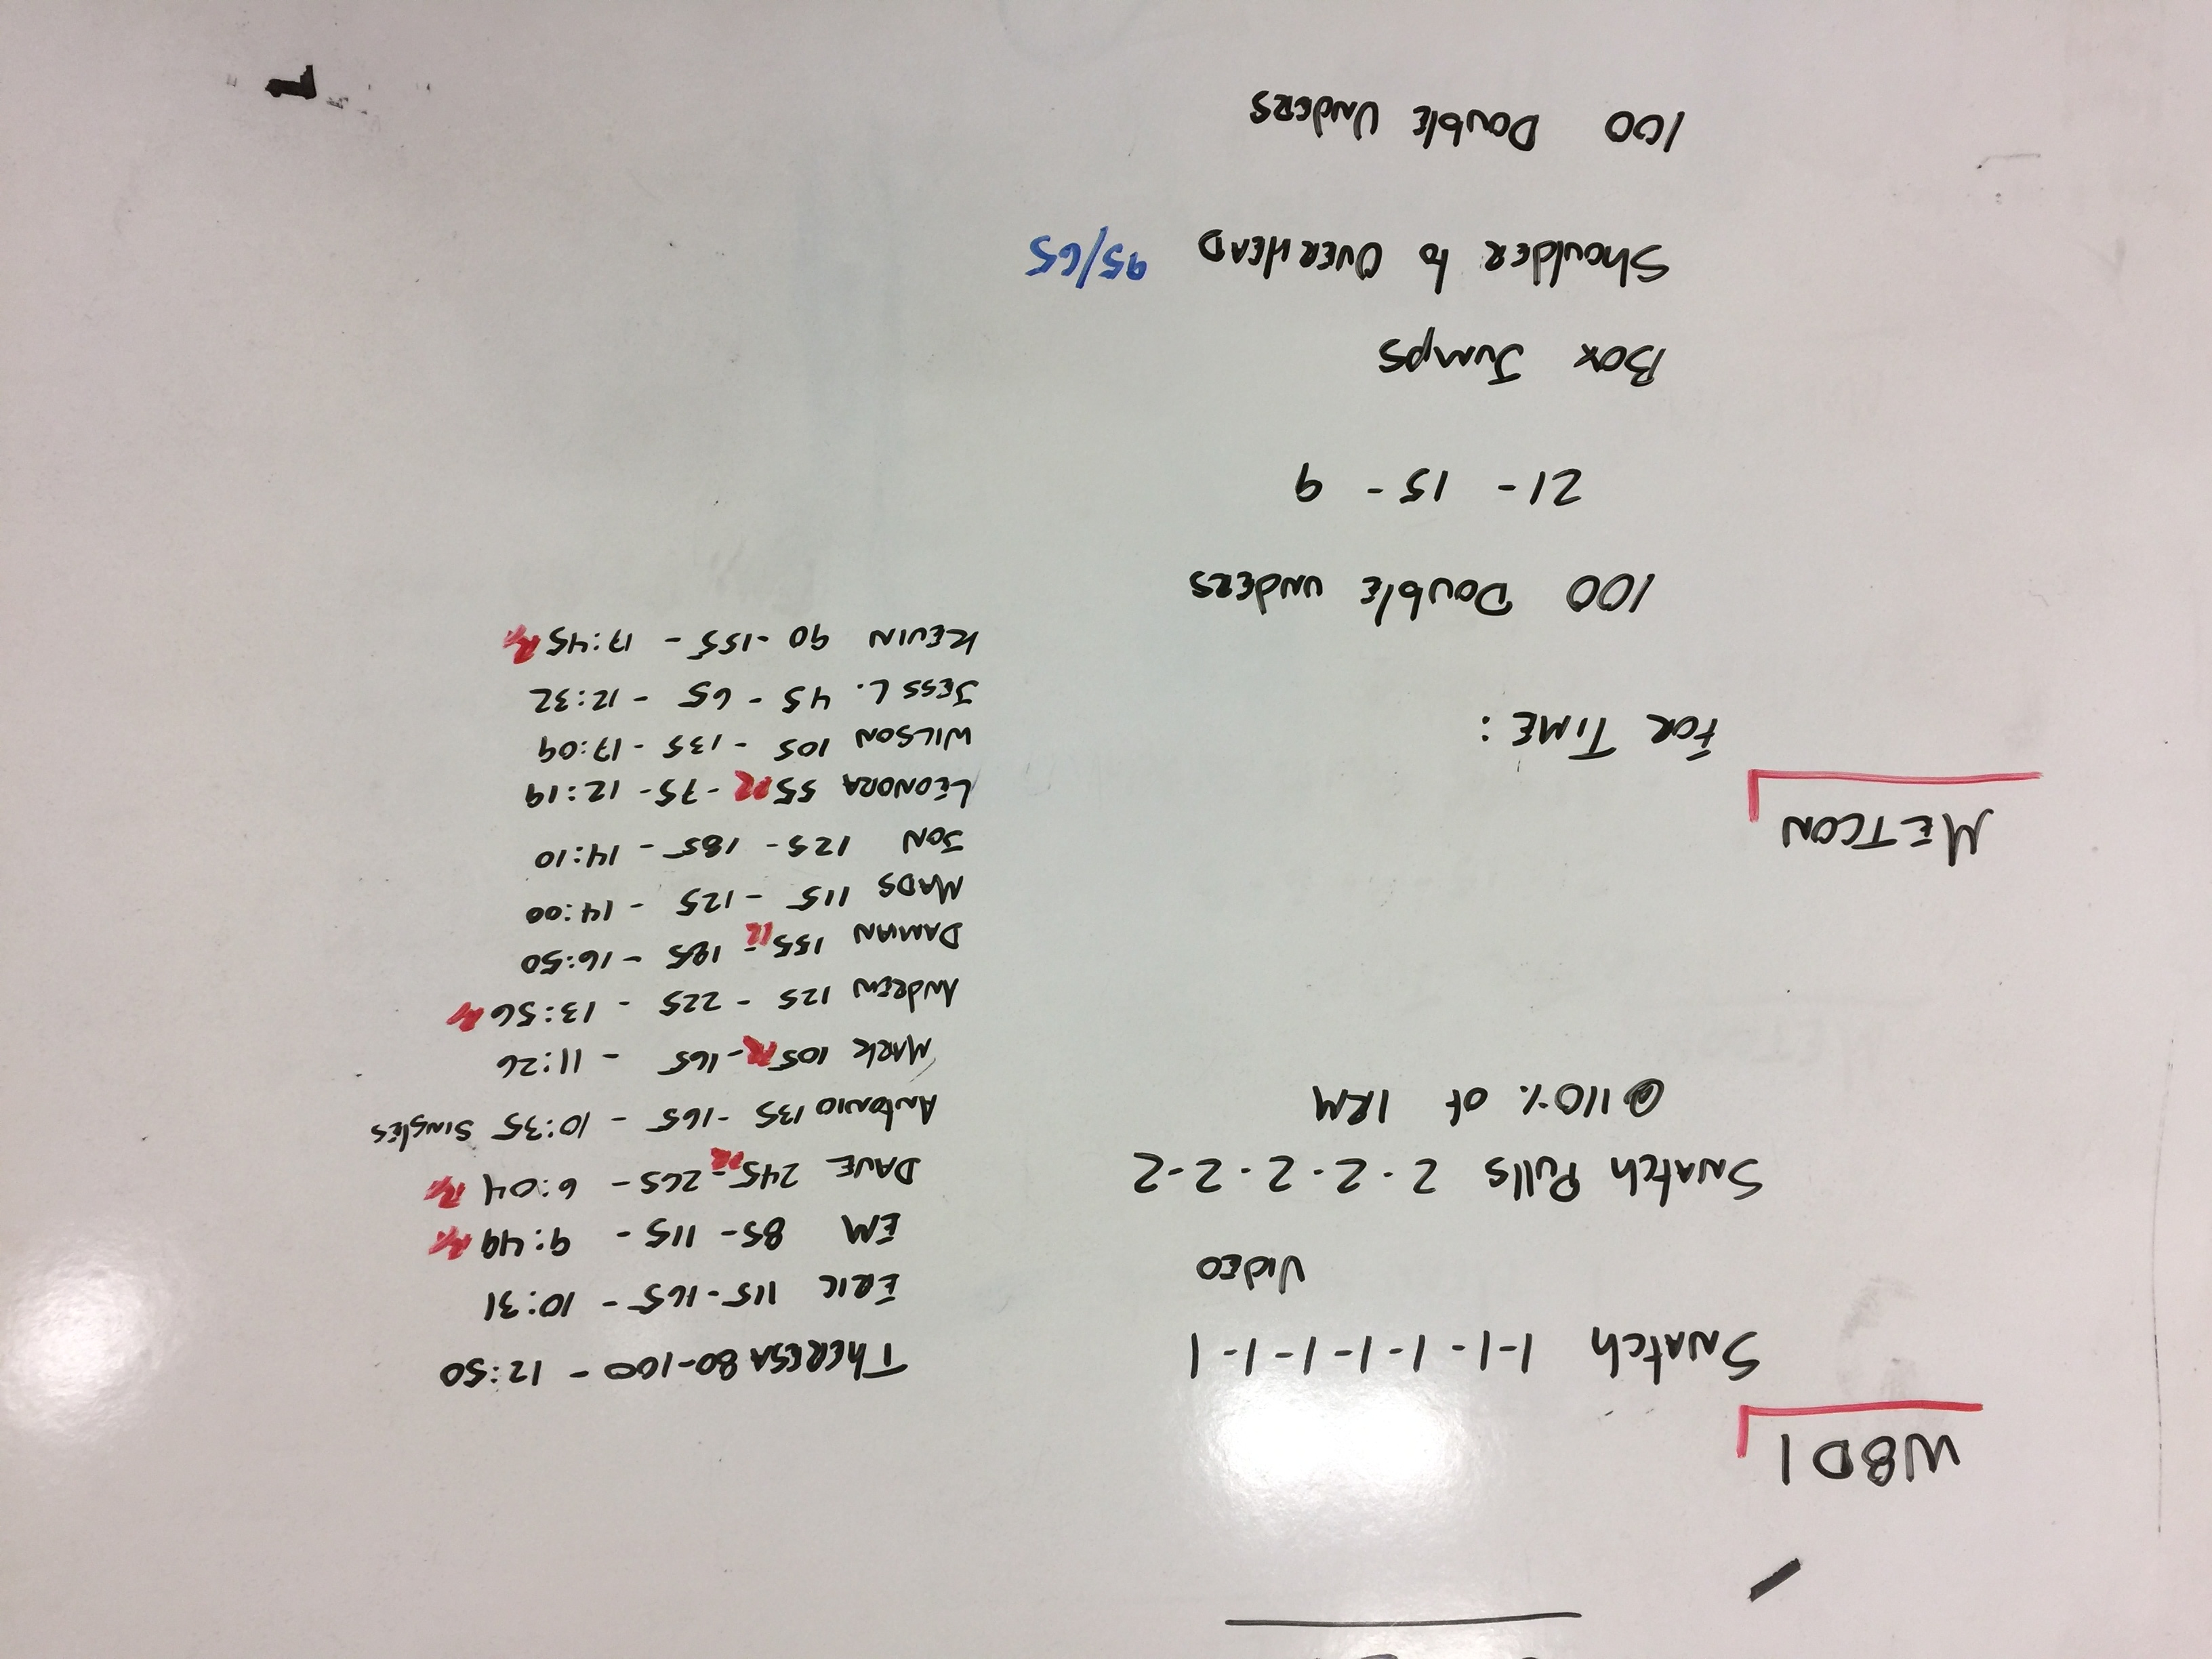 W8D1
Snatch 1-1-1-1-1-1-1
Video
Snatch Pulls 2-2-2-2-2
@110% of 1RM
METCON
FOR TIME:
100 Double unders
21- 15- 9
Box Jumps
Shoulder to OVERHEAD 95/65
100 Double Unders
THERESA 80-100 - 12:50
ERIC 115-165 - 10:31
EM 85- 115 - 9:49 Rx
DAVE 245 PR - 265 - 6:04 Rx
Antonio 135 -165 - 10:35 SINGlES
MARK 105 PR -165 - 11:26
ANDREW 125 - 225 - 13:56 Rx
DAMIAN 155 PR - 185 - 16:50
MADS 115 - 125 - 14:00
JON 125- 185 - 14:10
LEONORA 55 PR -75- 12:19
WILSON 105 - 135 - 17:09
JESS L. 45 - 65 - 12:32
KEVIN 90 -155 - 17:45 Rx